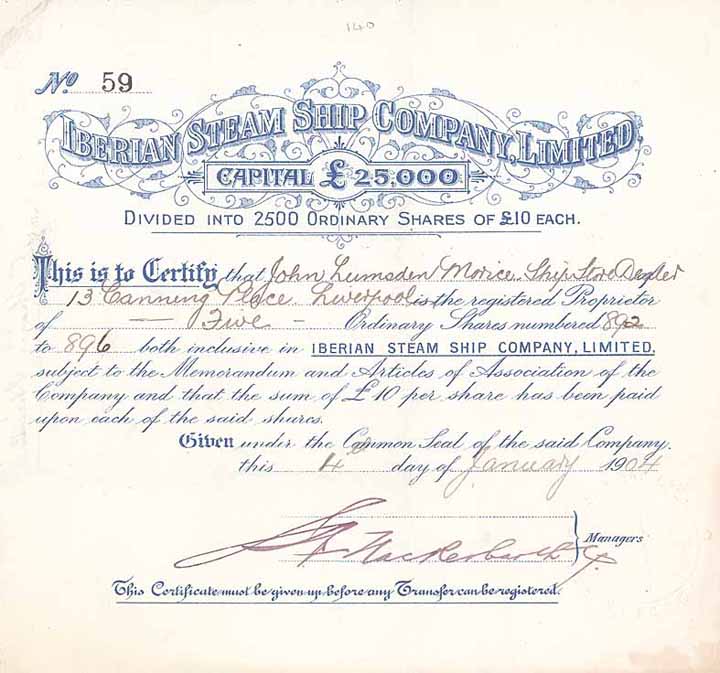 140
No 59
IBERIAN STEAM SHIP COMPANY, LIMITED
CAPITAL £25,000
DIVIDED INTO 2500 ORDINARY SHARES OF £10 EACH.
This is to Certify that John Lumsden Morice Ship Store Dealer
13 Canning Place Liverpool is the registered Proprietor
of — Five — Ordinary Shares numbered 892
to 896 both inclusive in IBERIAN STEAM SHIP COMPANY, LIMITED,
subject to the Memorandum and Articles of Association of the
Company and that the sum of £10 per share has been paid
upon each of the said shares.
Given under the Common Seal of the said Company.
this 4 day of January 1904
Managers
This Certificate must be given up before any Transfer can be registered.